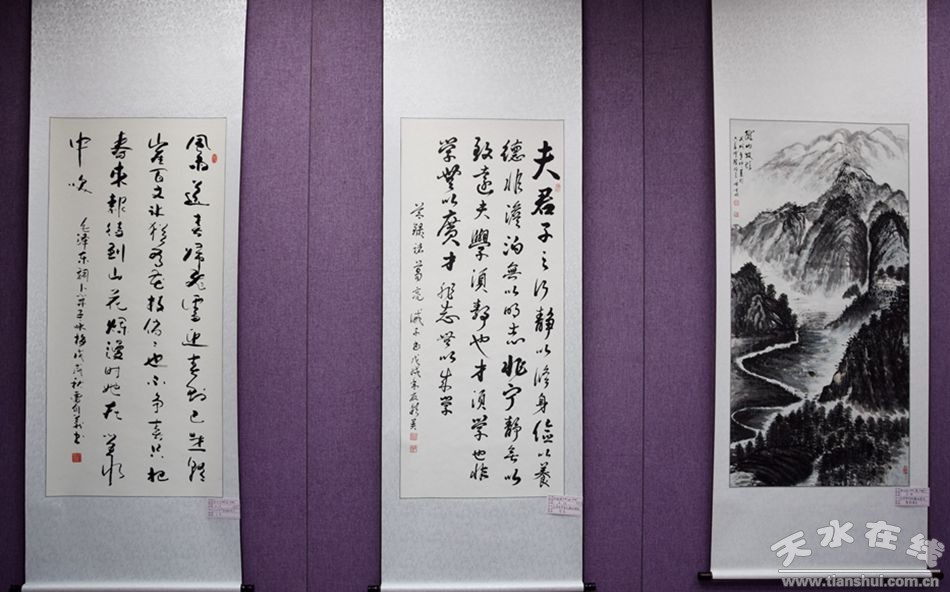 風雨送春歸飛雪迎春到已是懸
崖百丈冰猶有花枝俏〻也不争春只把
春来报待到山花爛漫时她在叢
中咲
毛泽东词卜算子咏梅戊戌秋
夫君子之行静以修身儉以養
德非澹泊無以明志非宁静無以
致遠夫學須静也才須学也非
学無以廣才非志無以成学
諸葛亮诫子书戊戌
天水在线
www.tianshui.com.cn